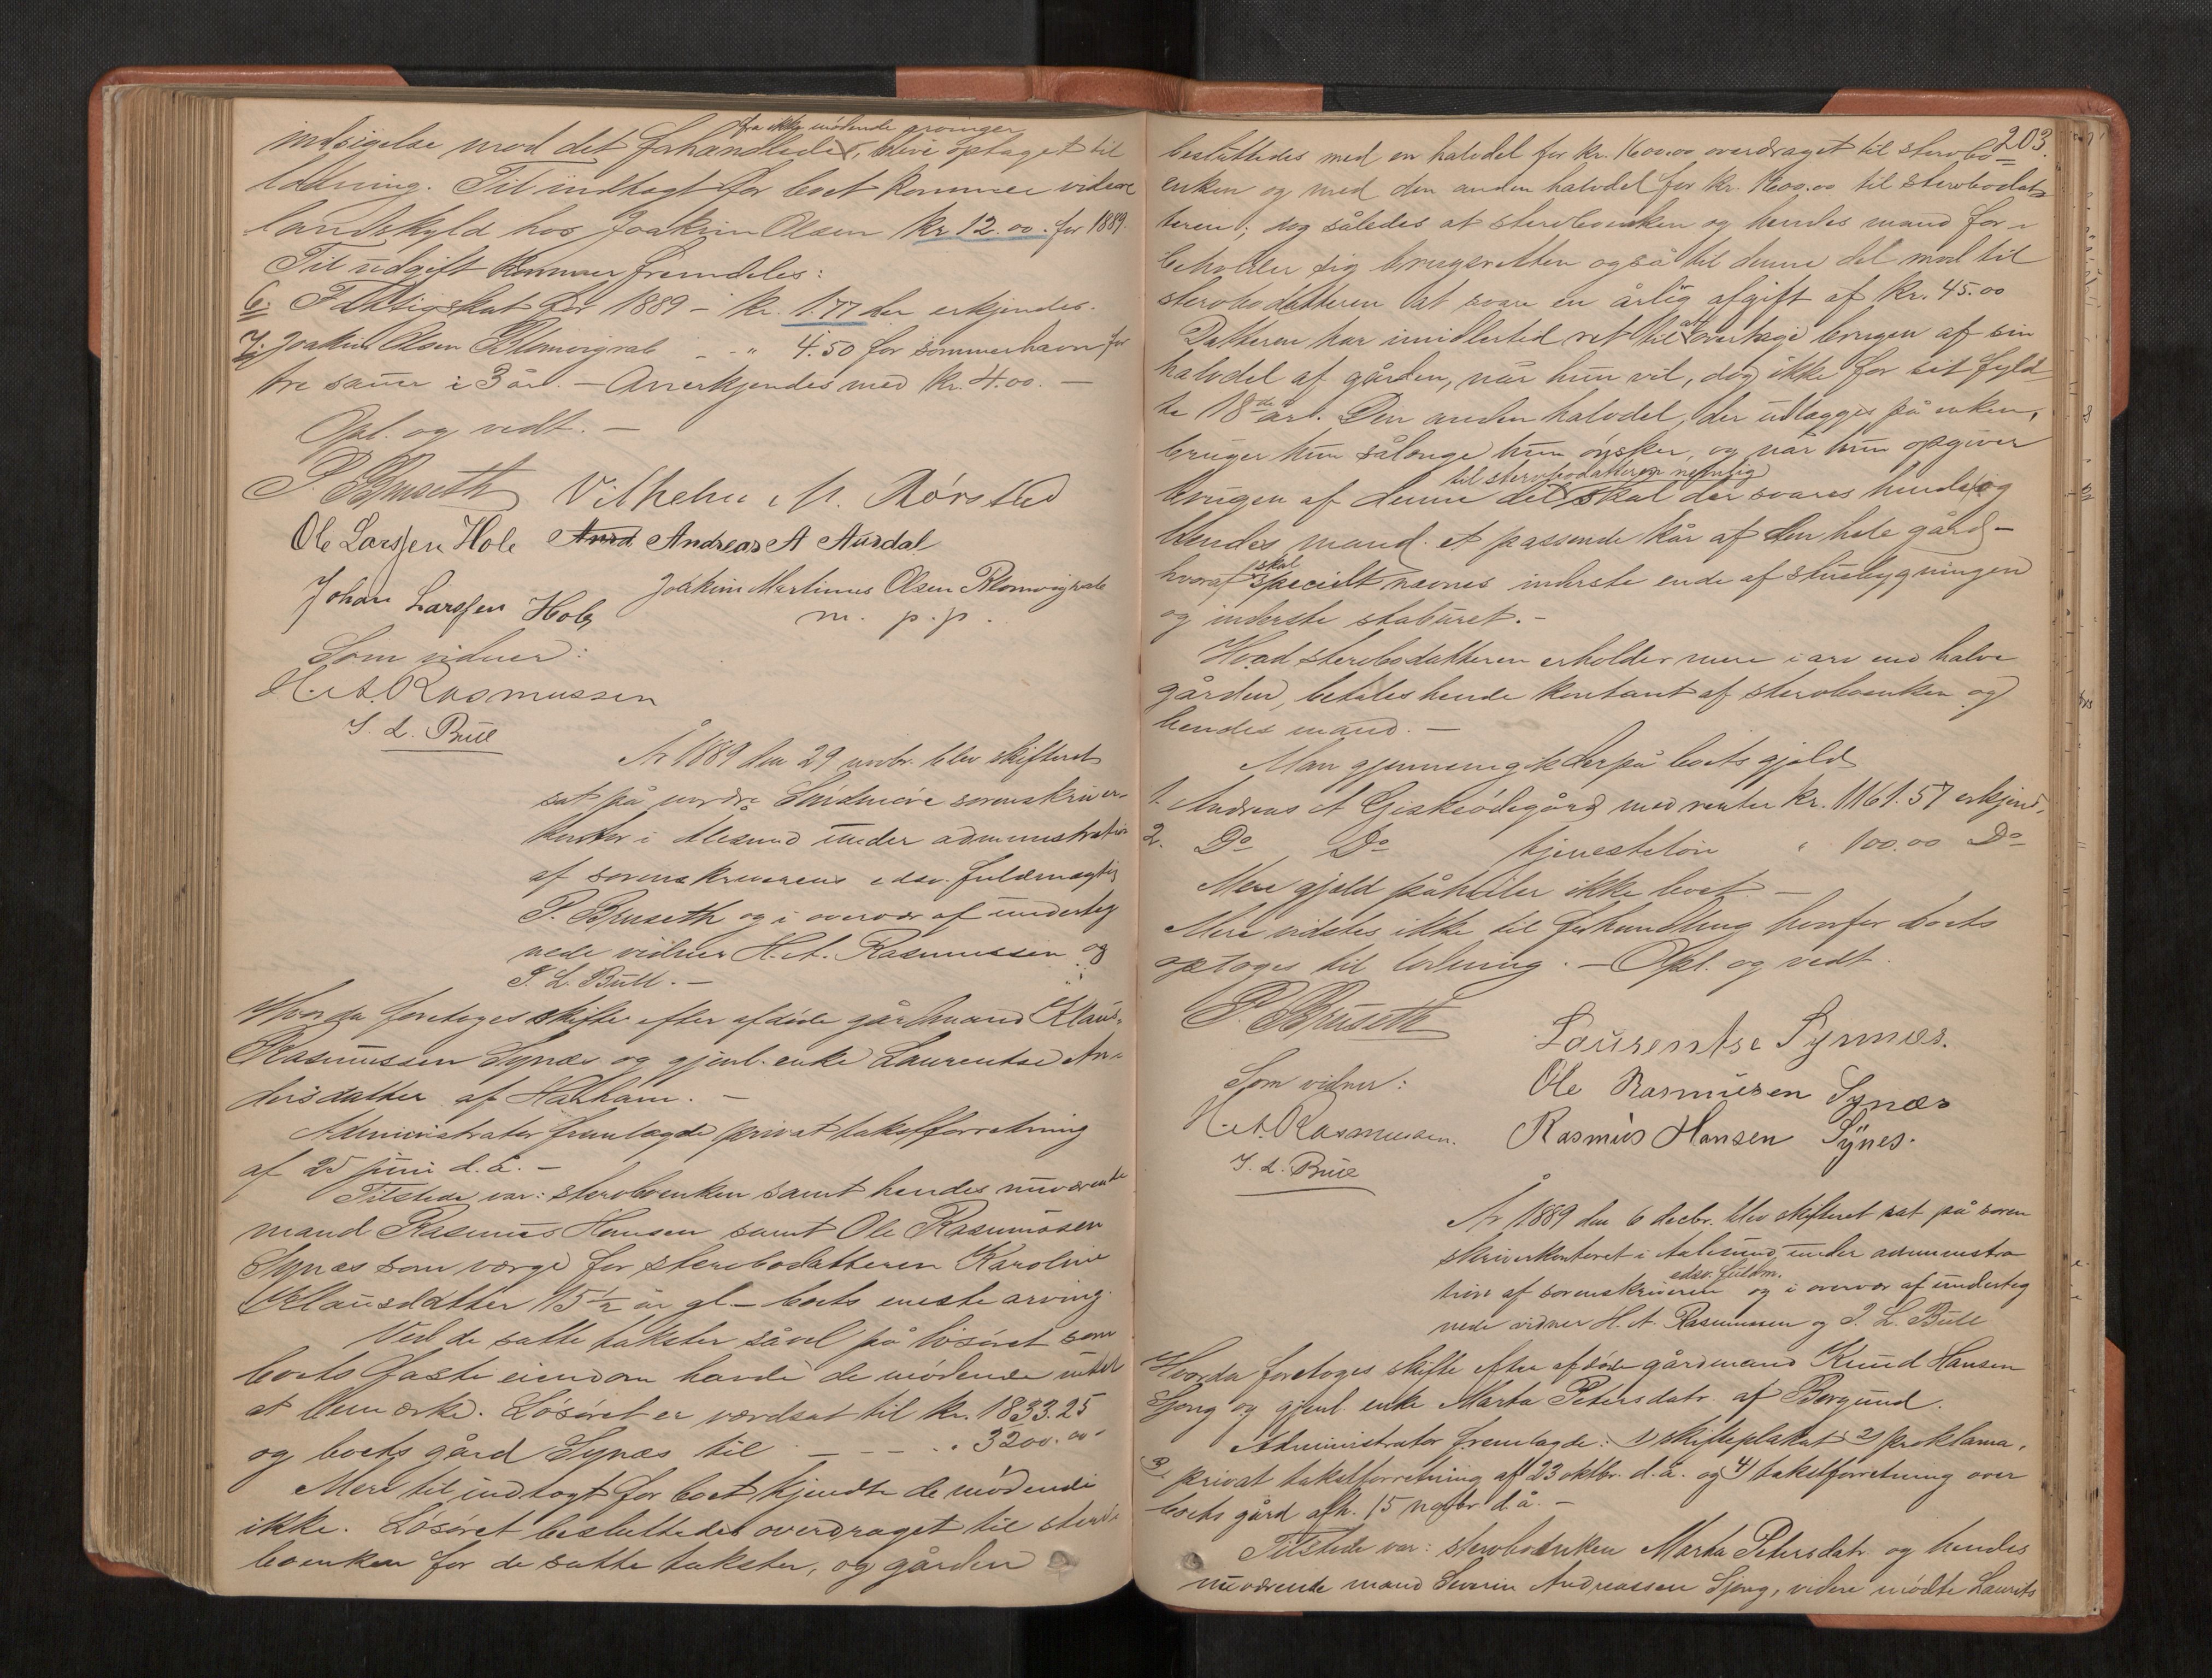 fra ikke mødende arvinger
indsigelse mod det forhandlede, blive optaget til
lodning. Til indtægt for boet kommer videre
landskyld hos Joakim Olsen kr 12.00. for 1889.
Til udgift kommer fremdeles:
6. Fattigskat for 1889 – kr. 1.77 der erkjendes.
7. Joakim Olsen Blomvigvale – – " 4.50 for sommerhavn for
tre sauer i 3 år. – Anerkjendes med kr. 4.00. –
Opl. og vedt. –
P. Bruseth Vilhelm M. Rørsted
Ole Larssen Hole And. Andreas A Aursdal
Johan Larssen Hole Joakim Martinus Olsen Blomvigvale
m. p. p.
Som vidner:
H. A. Rasmussen
I. L. Bull
År 1889 den 29 novbr. blev skifteret
sat på nordre Søndmøre sorenskriver-
kontor i Ålesund under administration
af sorenskriverens edsv. fuldmægtig
P. Bruseth og i overvær af underteg
nede vidner H. A. Rasmussen og
I. L. Bull. –
Hvorda foretoges skifte efter afdøde gårdmand Klaus
Rasmussen Synæs og gjenl. enke Laurentse An-
dersdatter af Harham. –
Administrator fremlagde privat takstforretning
af 25 juni d. å. –
Tilstede var: stervboenken samt hendes nuværende
mand Rasmus Hansen samt Ole Rasmussen
Synæs som værge for stervbodatteren Karoline
Klausdatter 15 ½ år gl. – boets eneste arving.
Ved de satte takster såvel på løsøret som
boets faste eiendom havde de mødende intet
at bemærke. Løsøret er værdsat til kr. 1833.25
og boets gård Synæs til – – – – " 3200.00
Mere til indtægt for boet kjendte de mødende
ikke. Løsøret besluttedes overdraget til sterv-
boenken for de satte takster, og gården
203.
besluttedes med en halvdel for kr. 1600.00 overdraget til stervbo=
enken og med den anden halvdel for kr. 1600.00 til stervbodat=
teren; dog således at stervboenken og hendes mand for-
beholder sig brugsretten også til denne del mod til
stervbodatteren at svare en årlig afgift af kr. 45.00
Datteren har imidlertid ret til at overtage brugen af sin
halvdel af gården, når hun vil, dog ikke før sit fyld
te 18de år. Den anden halvdel, der udlægges på enken,
bruger hun sålænge hun ønsker, og når hun opgiver
til stervbodatteren nemlig
brugen af denne del skal der svares hende og
hendes mand et passende kår af den hele gård –
hvoraf skal specielt nævnes inderste ende af stuebygningen
og inderste staburet. –
Hvad stervbodatteren erholder mere i arv end halve
gården, betales hende kontant af stervboenken og
hendes mand. –
Man gjennemgik derpå boets gjæld
1. Andreas A Giskeødegård med renter kr. 1161.57 erkjend.
2. Do Do tjenesteløn " 100.00 Do
Mere gjæld påhviler ikke boet. –
Mere vidstes ikke til forhandling hvorfor boets
optoges til lodning. – Opl. og vedt.
P. Bruseth Laurentse Synnæs.
Som vidner: Ole Rasmusen Synæs
H. A. Rasmussen. Rasmus Hansen Synes.
I. L. Bull
År 1889 den 6 decbr. blev skifteret sat på soren
skriverkontoret i Aalesund, under administra
tion af sorenskriverens edsv. fuldm. og i overvær af underteg
nede vidner H. A. Rasmussen og I. L. Bull
Hvorda foretoges skifte efter afdøde gårdmand Knud Hansen
Sjong og gjenl. enke Marta Petersdatr. af Borgund.
Administrator fremlagde: 1) skifteplakat 2) proklama,
3) privat takstforretning af 23 oktbr. d. å. og 4) takstforretning over
boets gård afh. 15 novbr d. å. –
Tilstede var: stervboenken Marta Petersdatr. og hendes
nuværende mand Severin Andreassen Sjong, videre mødte Laurits